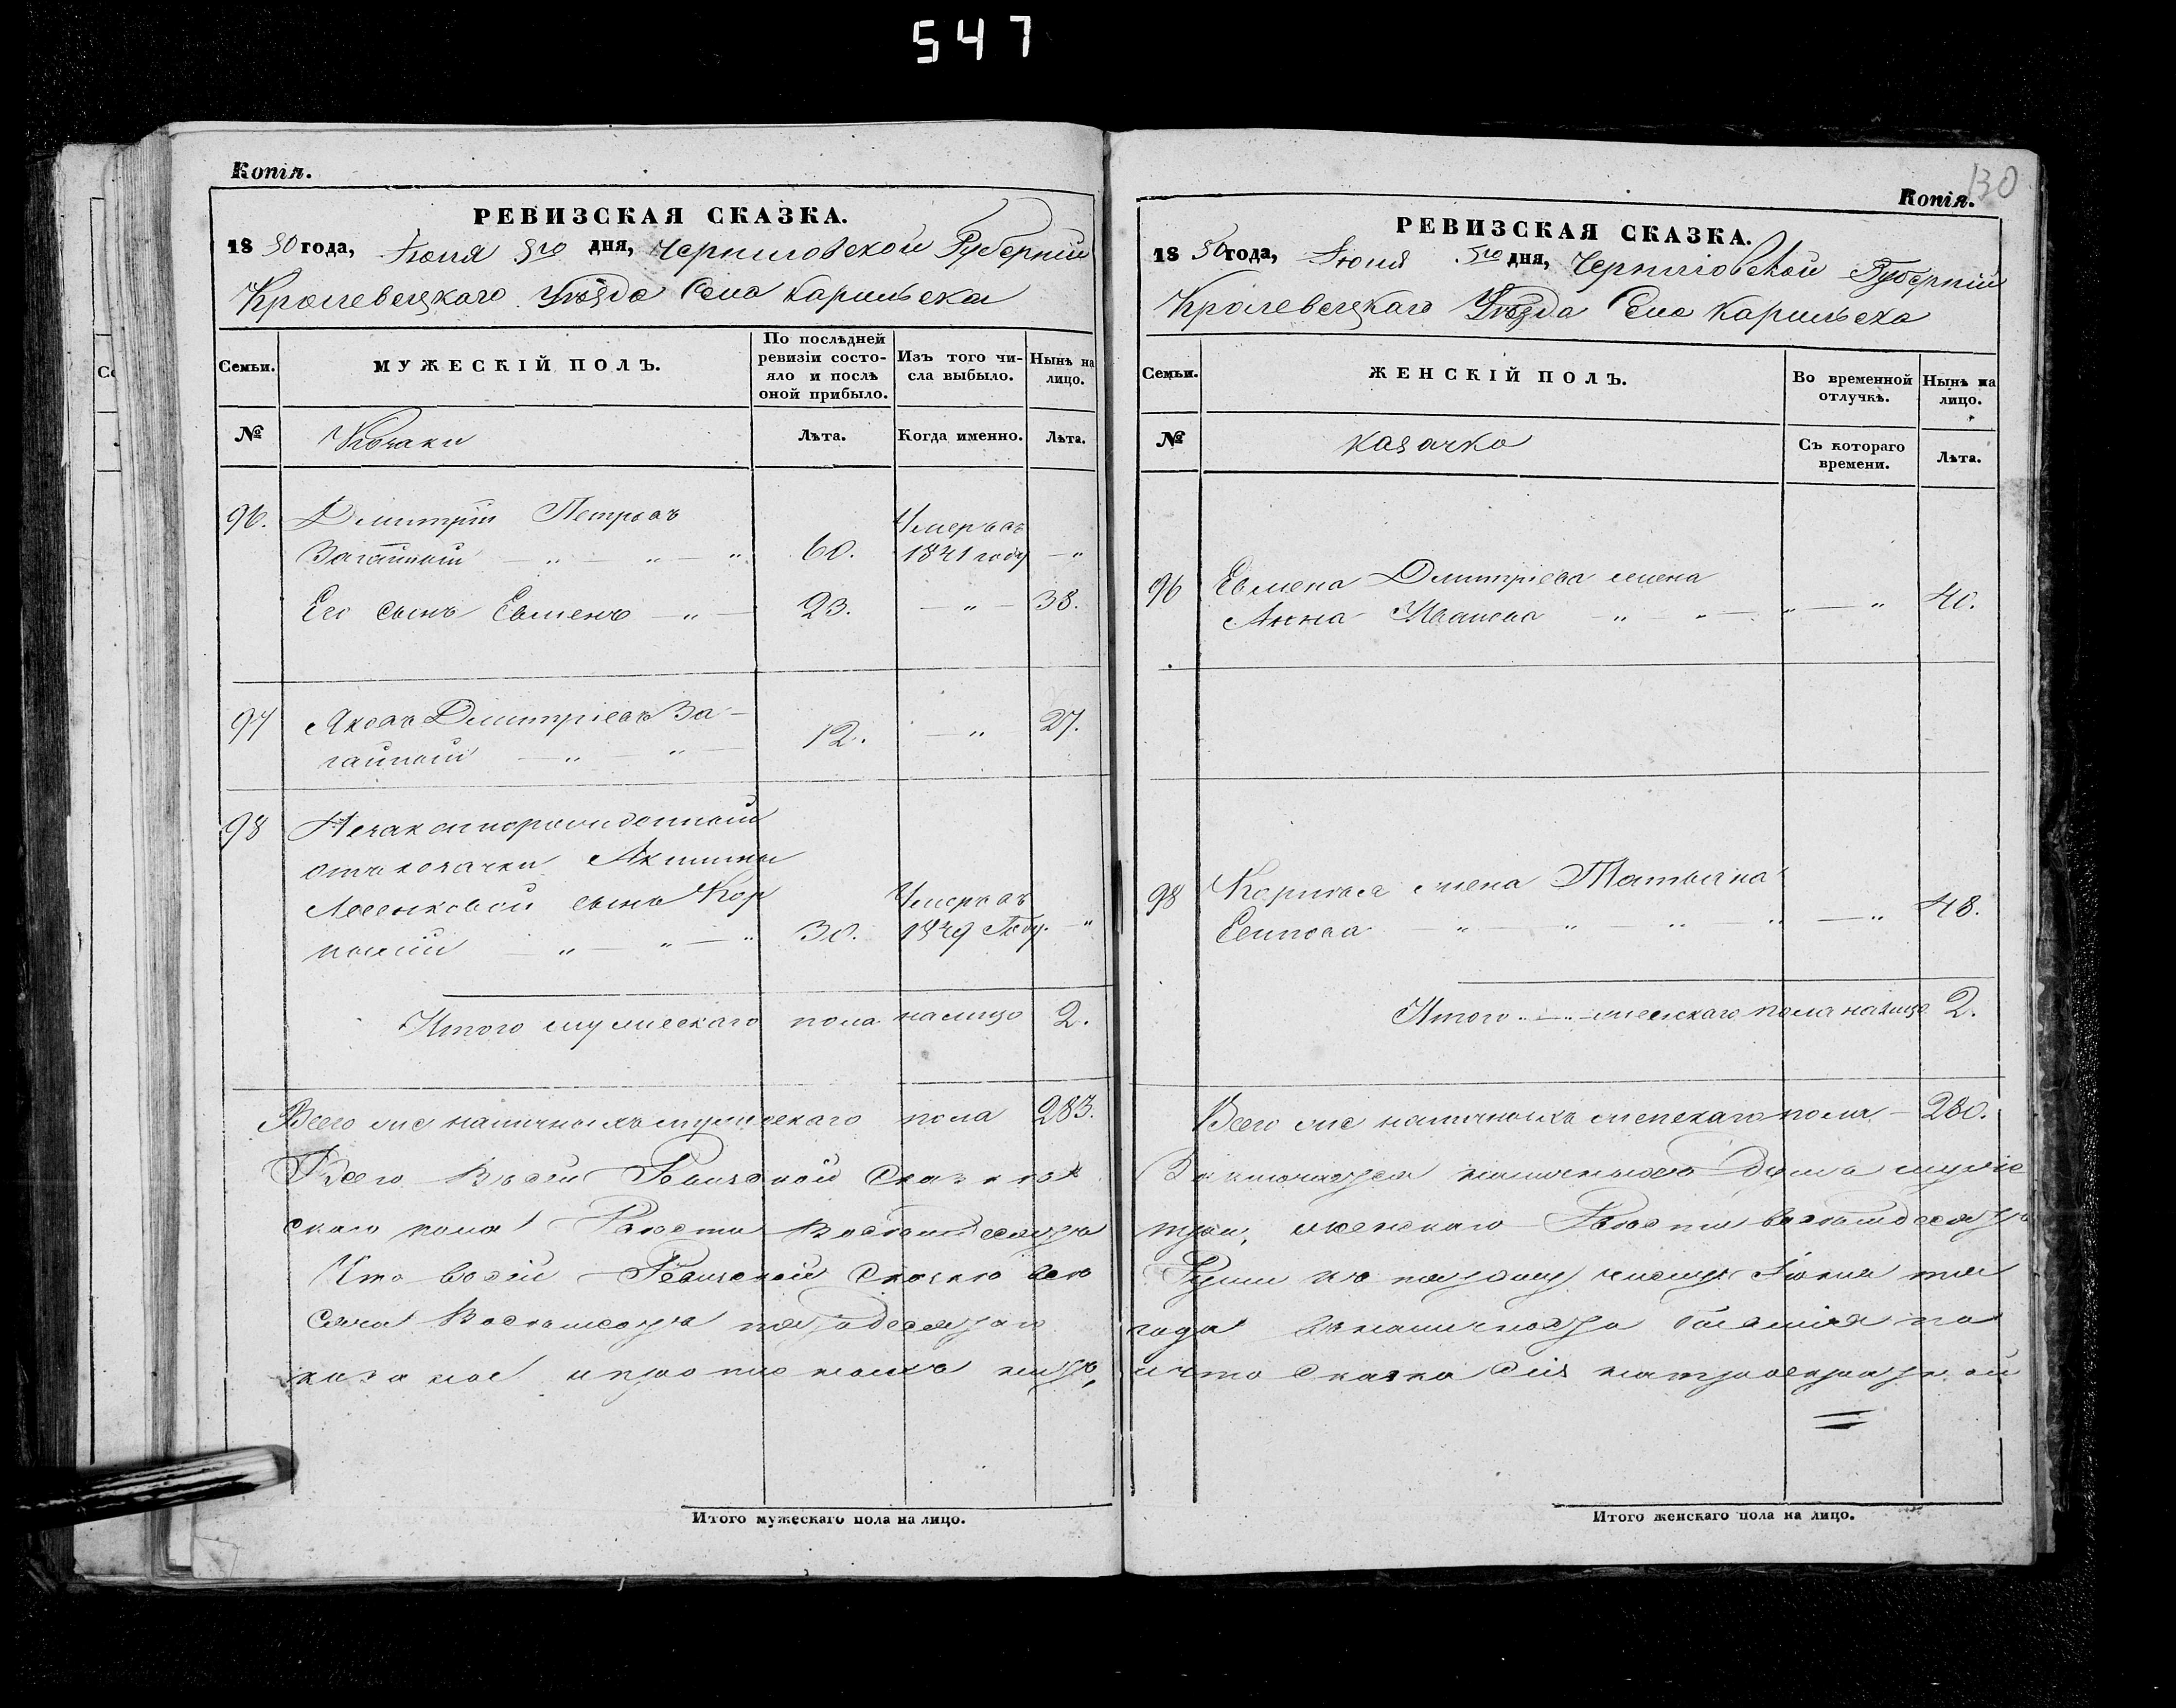 547
Копія.
РЕВИЗСКАЯ СКАЗКА.
1850 года, Іюня 5го дня, Черниговской Губерніи
Кролевецкаго Уѣзда Села Карильска
Семьи.
МУЖЕСКІЙ ПОЛЪ.
По послѣдней ревизіи состояло и послѣ оной прибыло.
Изъ того числа выбыло.
Нынѣ на лицо.
№
Козаки
Лѣта.
Когда именно.
Лѣта.
96. Дмитрій Петровъ Умеръ въ
60. 1841 году —„
Его сынъ Евменъ —„— 23. —„— 38.
97 Яковъ Дмитріевъ За-
гайный —„—„— 12. —„ 27.
98 Незаконнорожденный
отъ козачки Акилины
сынъ Кор Умеръ въ
нилій —„—„—„ 30. 1849 году. —„
Итого мужескаго пола налицо 2.
Всего же наличныхъ мужескаго пола 283.
Всего въ сей Ревизской Сказкѣ
скаго пола Двѣсти Восемьдесятъ
Что въ сей Ревизской Сказкѣ всѣ
сяча Восемьсотъ пятьдесятаго
и прописныхъ нѣтъ,
Итого мужескаго пола на лицо.
130
Копія.
РЕВИЗСКАЯ СКАЗКА.
1850 года, Іюня 5го дня, Черниговской Губерніи
Кролевецкаго Уѣзда Села Карильска
Семьи.
ЖЕНСКІЙ ПОЛЪ.
Во временной отлучкѣ.
Нынѣ на лицо.
№
Козачки
Съ котораго времени.
Лѣта.
96 Евмена Дмитріева жена
Анна Иванова —„—„—„—„ 40.
98 Корнилія жена Татьяна
„—„—„—„—„ 48.
Итого —„— женскаго пола налицо 2.
Всего же наличныхъ женскаго пола — 280.
Заключается наличныхъ Душъ муже
три, женскаго Двѣсти восемьдесятъ
Души къ пятому числу Іюня
года
и что сказка сія
Итого женскаго пола на лицо.